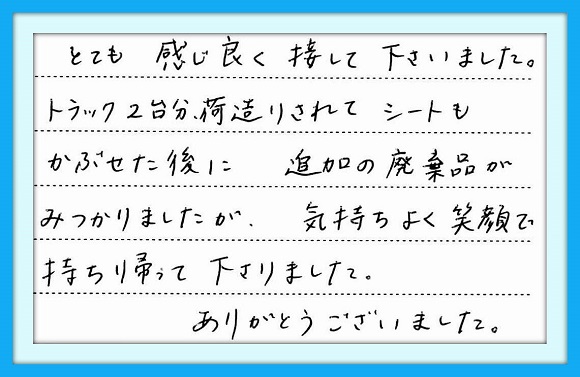 とても 感じ良く 接して 下さいました。
トラック2台分、荷造りされて シートも
かぶせた後に 追加の廃棄品が
みつかりましたが、 気持ちよく笑顔で
持ち帰って 下さりました。
ありがとうございました。